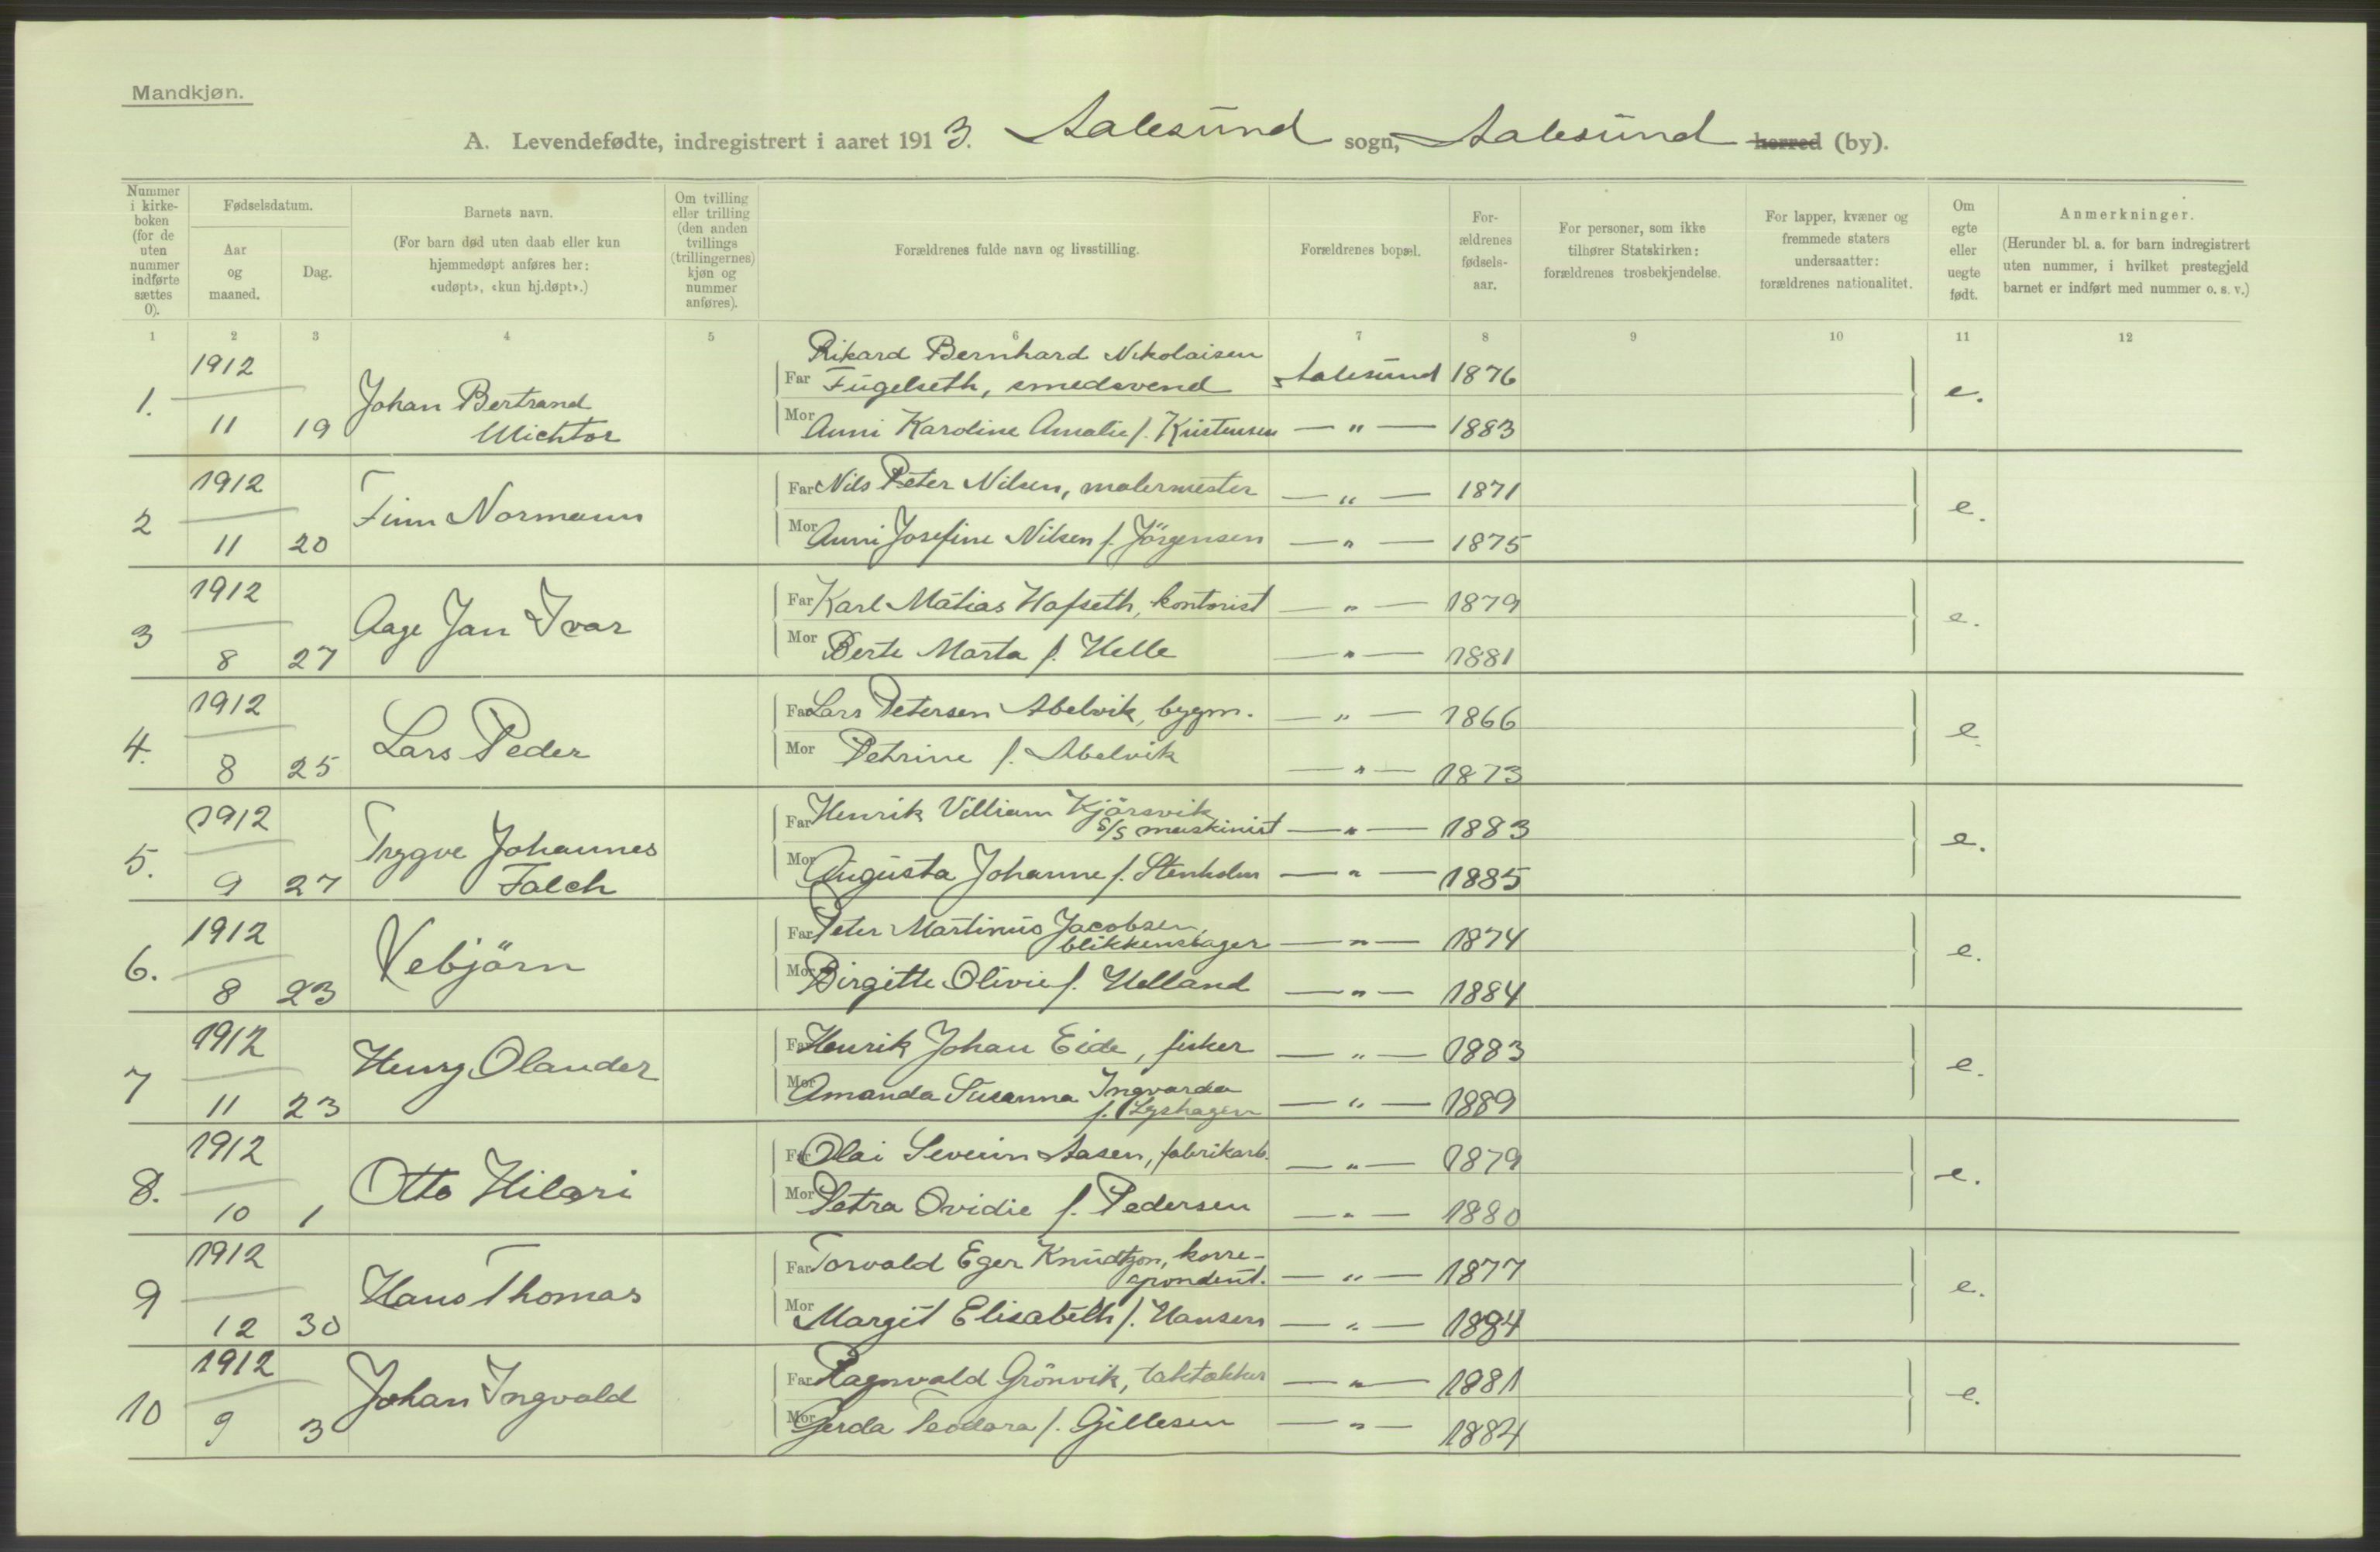 Mandkjøn.
A. Levendefødte, indregistrert i aaret 1913. Aalesund sogn, Aalesund herred (by).
Nummer i kirkeboken (for de uten nummer indførte sættes 0).
Fødselsdatum.
Aar og maaned.
Dag.
Barnets navn.
(For barn død uten daab eller kun hjemmedøpt anføres her: «udøpt», «kun hj.døpt».)
Om tvilling eller trilling (den anden tvillings (trillingernes) kjøn og nummer anføres).
Forældrenes fulde navn og livsstilling.
Forældrenes bopæl.
Forældrenes fødselsaar.
For personer, som ikke tilhører Statskirken: forældrenes trosbekjendelse.
For lapper, kvæner og fremmede staters undersaatter: forældrenes nationalitet.
Om egte eller uegte født.
Anmerkninger.
(Herunder bl. a. for barn indregistrert uten nummer, i hvilket prestegjeld barnet er indført med nummer o. s. v.)
1 2 3 4 5 6 7 8 9 10 11 12
1. 1912 11 19 Johan Bertrand Michtor
Far Rikard Bernhard Nikolaisen Fugelseth, smedsvend Aalesund 1876 e.
Mor Anni Karoline Amalie f. Kristensen — " — 1883
2 1912 11 20 Finn Normann
Far Nils Peter Nilsen, malermester — " — 1871 e.
Mor Anni Josefine Nilsen f. Jörgensen — " — 1875
3 1912 8 27 Aage Jan Ivar
Far Karl Matias Hafseth, kontorist — " — 1879 e.
Mor Berte Marta f. Helle — " — 1881
4. 1912 8 25 Lars Peder
Far Lars Petersen Abelvik, bygm. — " — 1866 e.
Mor Petrine f. Abelvik — " — 1873
5. 1912 9 27 Trygve Johannes Falch
Far Henrik Villiam Kjörsvik s/s maskinist — " — 1883 e.
Mor Augusta Johanne f. Stenholm — " — 1885
6. 1912 8 23 Vebjörn
Far Peter Martinus Jacobsen, blikkenslager — " — 1874 e.
Mor Birgitte Olivie f. Helland — " — 1884
7 1912 11 23 Henry Olander
Far Henrik Johan Eide, fisker — " — 1883 e.
Mor Amanda Susanna Ingvarda f. Lyshagen — " — 1889
8. 1912 10 1 Otto Hilari
Far Olai Severin Aasen, fabrikarb. — " — 1879 e.
Mor Petra Ovidie f. Pedersen — " — 1880
9 1912 12 30 Hans Thomas
Far Torvald Eger Knudtzon, korrespondent. — " — 1877 e.
Mor Margit Elisabeth f. Hansen — " — 1884
10 1912 9 3 Johan Ingvald
Far Ragnvald Grönvik, taktækker — " — 1881 e.
Mor Gerda Teodora f. Gillesen — " — 1884